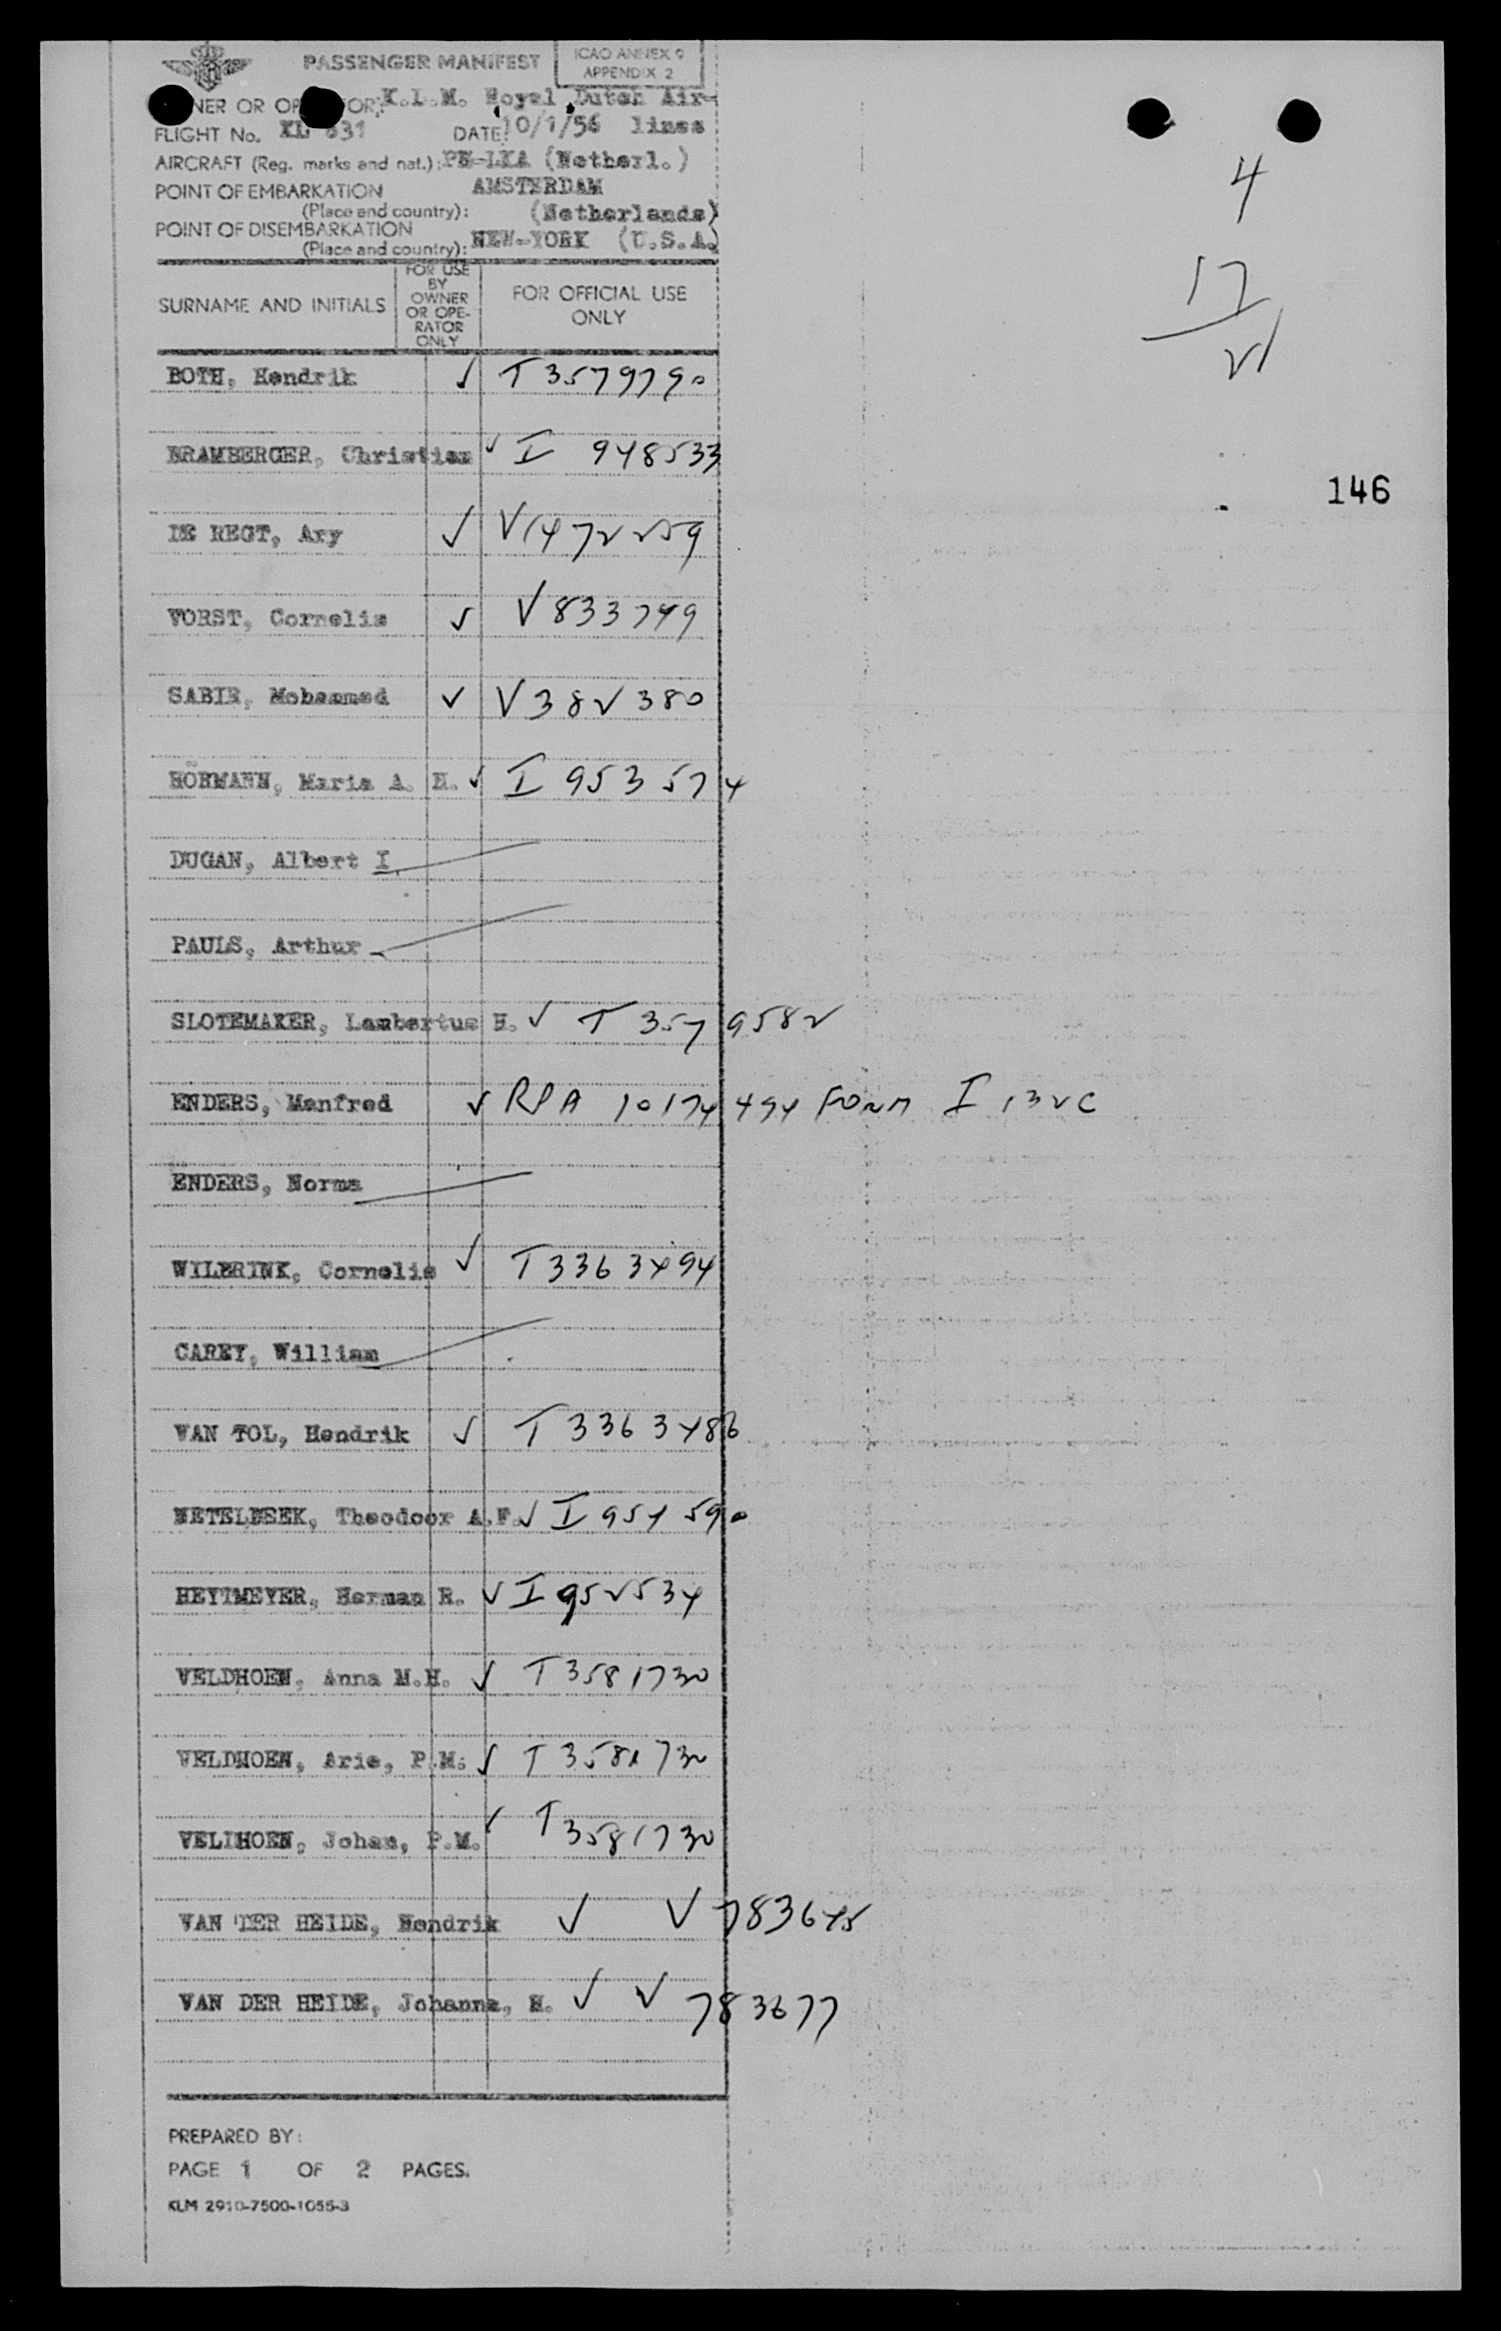 PASSENGER MANIFEST
ICAO ANNEX 9
APPENDIX 2
K.L.M. Royal Dutch Air-
FLIGHT No. KL 631 DATE: 10/1/56 lines
AIRCRAFT (Reg. marks and nat.): PH-LKA (Netherl.)
POINT OF EMBARKATION AMSTERDAM
(Place and country): (Netherlands)
POINT OF DISEMBARKATION
(Place and country): NEW-YORK (U.S.A.)
4
17
21
SURNAME AND INITIALS
FOR USE
BY
OWNER
OR OPE-
RATOR
ONLY
FOR OFFICIAL USE
ONLY
BOTH, Hendrik ✓ T 3579790
BRAMBERGER, Christian ✓ I 948533
146
DE REGT, Ary ✓ V1472259
VORST, Cornelis ✓ V 833749
SABIR, Mohammed ✓ V382380
HÖRMANN, Maria A. H. ✓ I 953574
DUGAN, Albert I.
PAULS, Arthur
SLOTEMAKER, Lambertus H. ✓ T 3579582
ENDERS, Manfred ✓ RPA 10174494 FORM I 132C
ENDERS, Norma
WILBRINK, Cornelis ✓ T3363494
CAREY, William
VAN TOL, Hendrik ✓ T 3363486
NETELBEEK, Theodoor A.F. ✓ I 954590
HEYTMEYER, Herman R. ✓ I 952534
VELDHOEN, Anna M.H. ✓ T 3581730
VELDHOEN, Arie, P.M. ✓ T 3581730
VELDHOEN, Johan, P.M. ✓ T 3581730
VAN DER HEIDE, Hendrik ✓ V 783645
VAN DER HEIDE, Johanna, H. ✓ V 783677
PREPARED BY:
PAGE 1 OF 2 PAGES.
KLM 2910-7500-1055-3